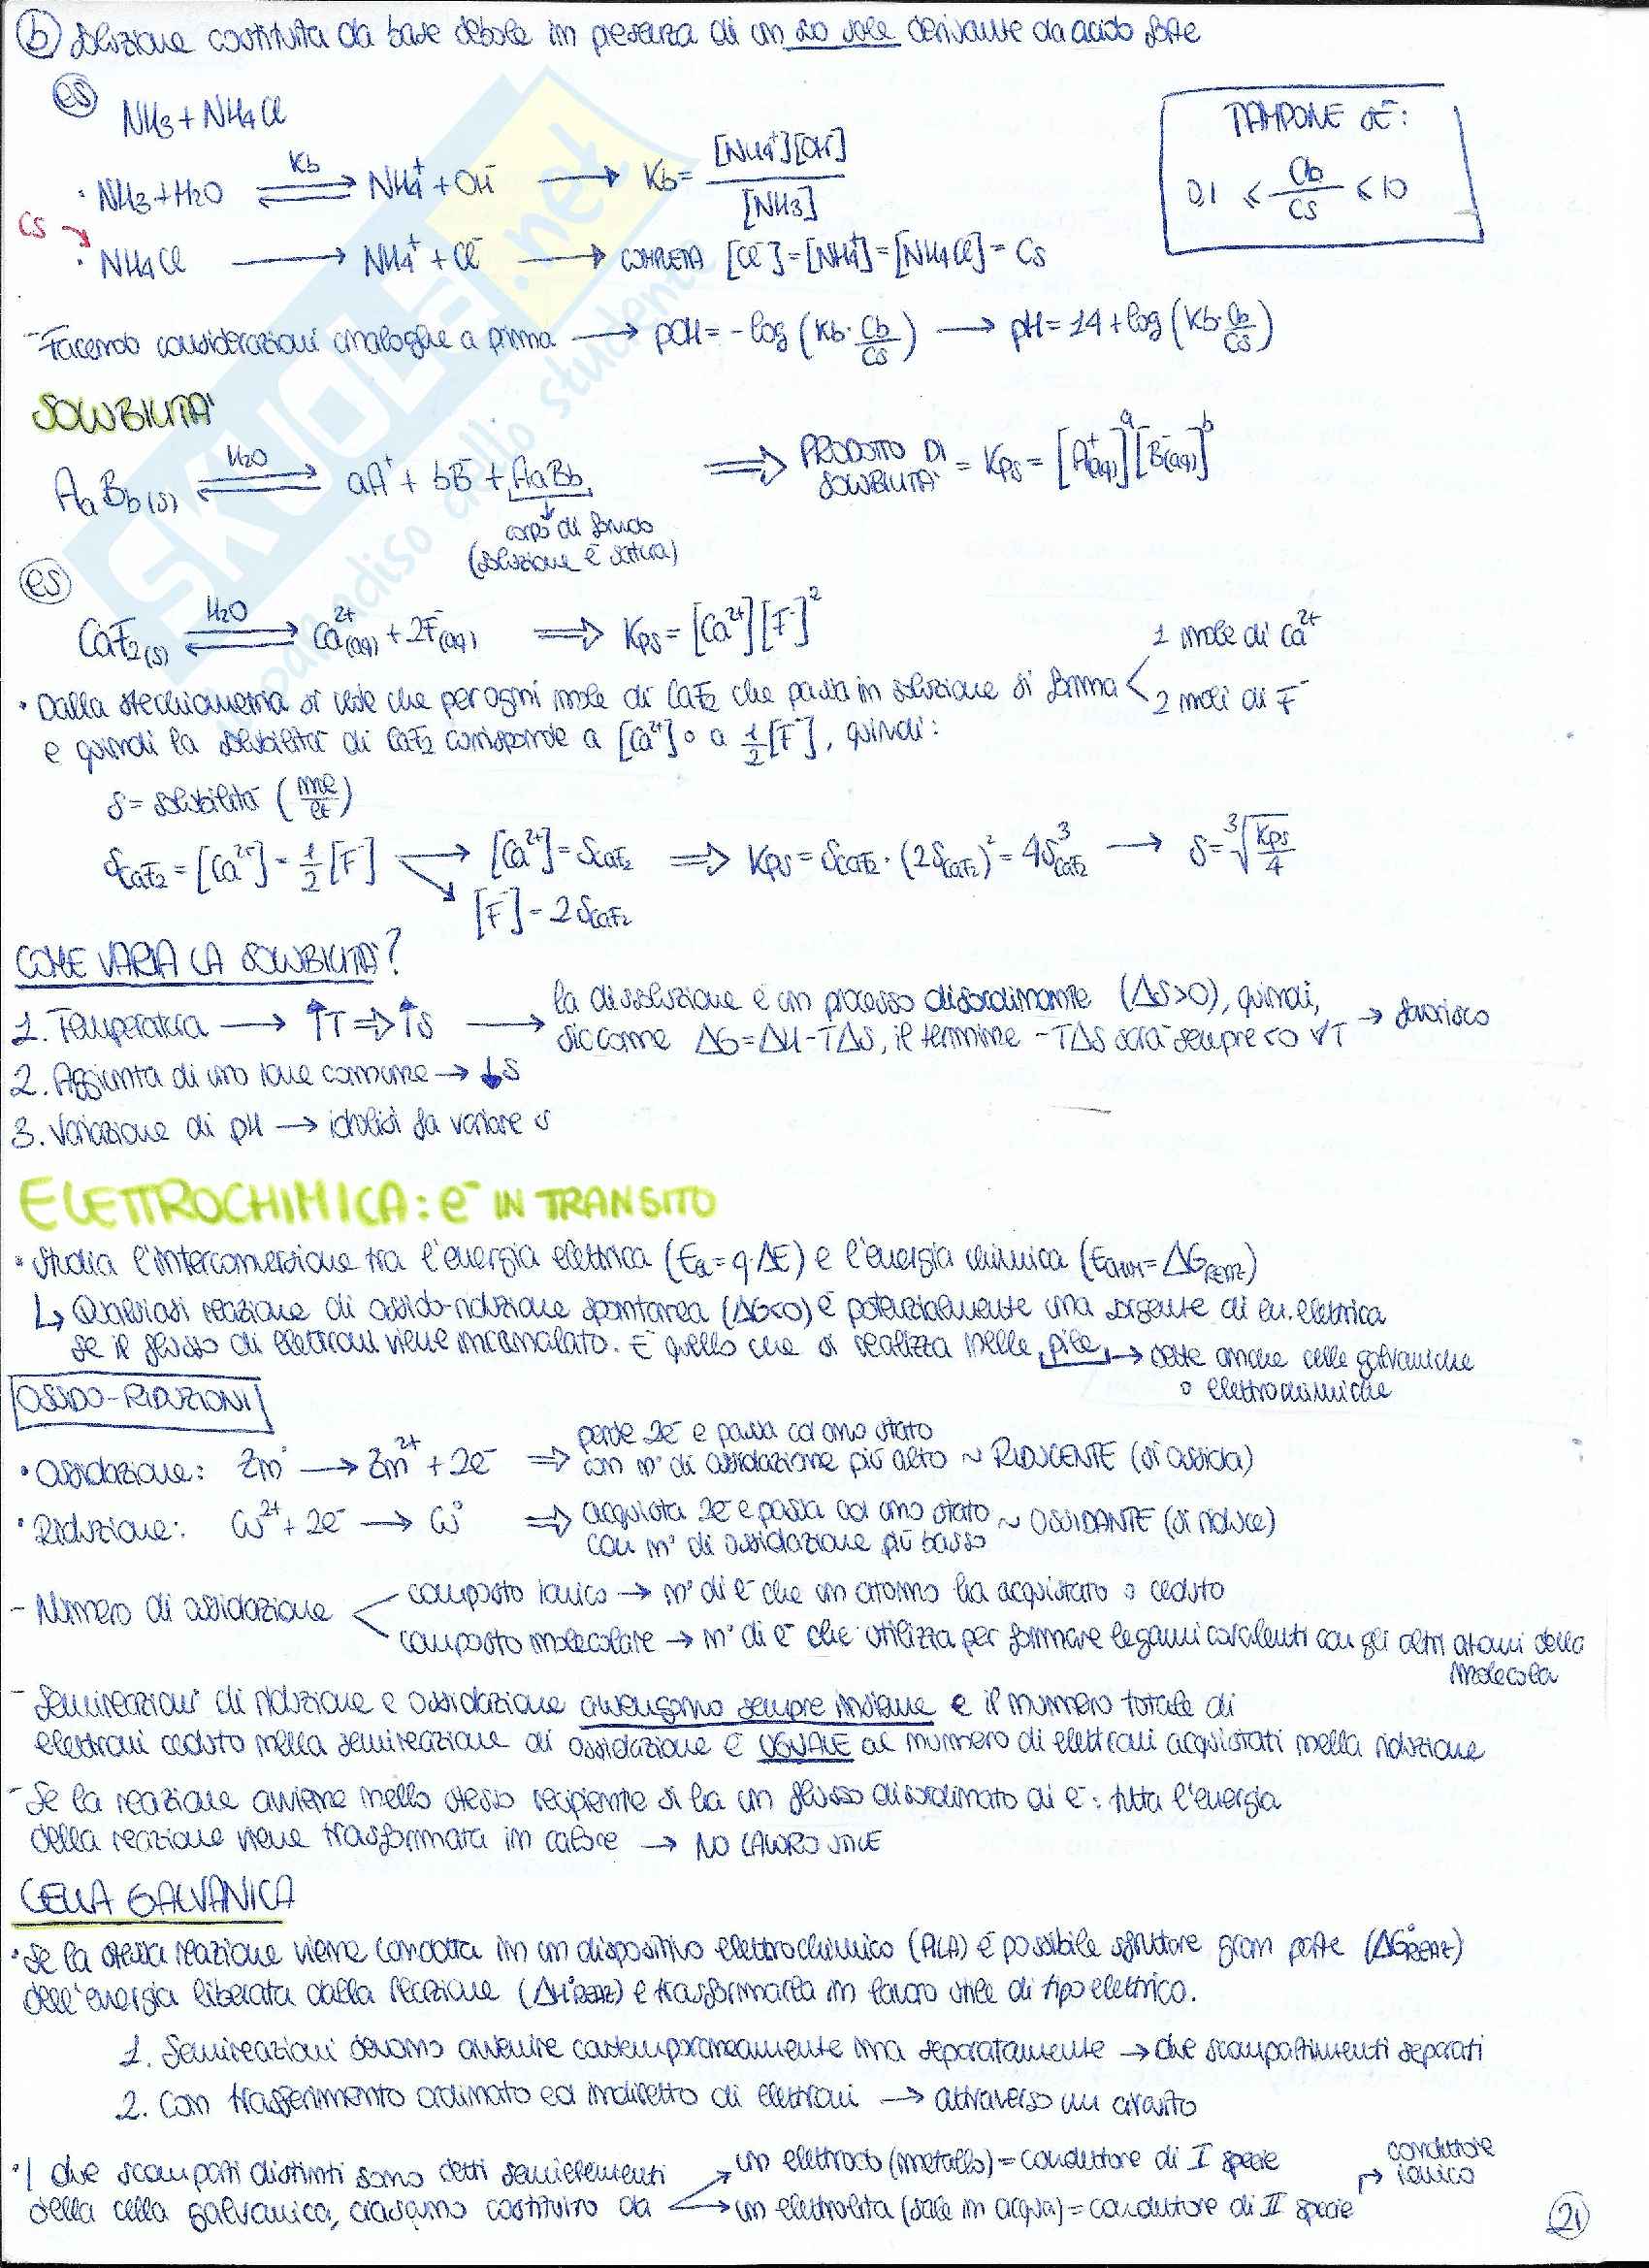 b) Soluzione costituita da base debole in presenza di un so sale derivante da acido forte
es NH3 + NH4Cl
TAMPONE SE:
0,1 ≤ Cb/Cs ≤ 10
· NH3 + H2O ⇌ (Kb) NH4+ + OH- → Kb = [NH4+][OH-] / [NH3]
Cs
· NH4Cl → NH4+ + Cl- → COMPLETA [Cl-] = [NH4+] = [NH4Cl] = Cs
- Facendo considerazioni analoghe a prima → pOH = -log (Kb · Cb/Cs) → pH = 14 + log (Kb · Cb/Cs)
SOLUBILITA'
AaBb(s) ⇌ (H2O) aA+ + bB- + AaBb ⇒ PRODOTTO DI SOLUBILITA' = Kps = [A+(aq)]^a [B-(aq)]^b
corpo di fondo
(soluzione è satura)
es
CaF2(s) ⇌ (H2O) Ca2+(aq) + 2F-(aq) ⇒ Kps = [Ca2+][F-]^2
1 mole di Ca2+
· Dalla stechiometria si vede che per ogni mole di CaF2 che passa in soluzione si forma <
2 moli di F-
e quindi la solubilità di CaF2 corrisponde a [Ca2+] o a 1/2 [F-], quindi:
s = solubilità (mol/lt)
sCaF2 = [Ca2+] = 1/2 [F-] → [Ca2+] = sCaF2 ⇒ Kps = sCaF2 · (2sCaF2)^2 = 4s^3CaF2 → s = ∛(Kps/4)
[F-] = 2sCaF2
COME VARIA LA SOLUBILITA'?
1. Temperatura → ↑T ⇒ ↑s → la dissoluzione è un processo disordinante (ΔS>0), quindi,
siccome ΔG = ΔH - TΔS, il termine -TΔS sarà sempre <0 ∀T → favorisco
2. Aggiunta di uno ione comune → ↓s
3. Variazione di pH → idrolisi fa variare s
ELETTROCHIMICA: e- IN TRANSITO
· Studia l'interconversione tra l'energia elettrica (Eel = q·ΔE) e l'energia chimica (Echim = ΔGreaz)
↳ Qualsiasi reazione di ossido-riduzione spontanea (ΔG<0) è potenzialmente una sorgente di en. elettrica
se il flusso di elettroni viene incanalato. E' quello che si realizza nelle pile → dette anche celle galvaniche
o elettrochimiche
OSSIDO-RIDUZIONI
perde 2e- e passa ad uno stato
· Ossidazione: Zn° → Zn2+ + 2e- ⇒ con n° di ossidazione più alto ~ RIDUCENTE (si ossida)
· Riduzione: Cu2+ + 2e- → Cu° ⇒ acquista 2e- e passa ad uno stato ~ OSSIDANTE (si riduce)
con n° di ossidazione più basso
composto ionico → n° di e- che un atomo ha acquistato o ceduto
- Numero di ossidazione <
composto molecolare → n° di e- che utilizza per formare legami covalenti con gli altri atomi della
molecola
- Semireazioni di riduzione e ossidazione avvengono sempre insieme e il numero totale di
elettroni ceduto nella semireazione di ossidazione è UGUALE al numero di elettroni acquistati nella riduzione
- Se la reazione avviene nello stesso recipiente si ha un flusso disordinato di e-: tutta l'energia
della reazione viene trasformata in calore → NO LAVORO UTILE
CELLA GALVANICA
· Se la stessa reazione viene condotta in un dispositivo elettrochimico (PILA) è possibile sfruttare gran parte (ΔG°REAZ)
dell'energia liberata dalla reazione (ΔH°REAZ) e trasformarla in lavoro utile di tipo elettrico.
1. Semireazioni devono avvenire contemporaneamente ma separatamente → due scompartimenti separati
2. Con trasferimento ordinato ed indiretto di elettroni → attraverso un circuito
· I due scomparti distinti sono detti semielementi
della cella galvanica, ciascuno costituito da
un elettrodo (metallo) = conduttore di I specie
un elettrolita (sale in acqua) = conduttore di II specie
conduttore
ionico
21
SKUOLA.net
paradiso dello studente